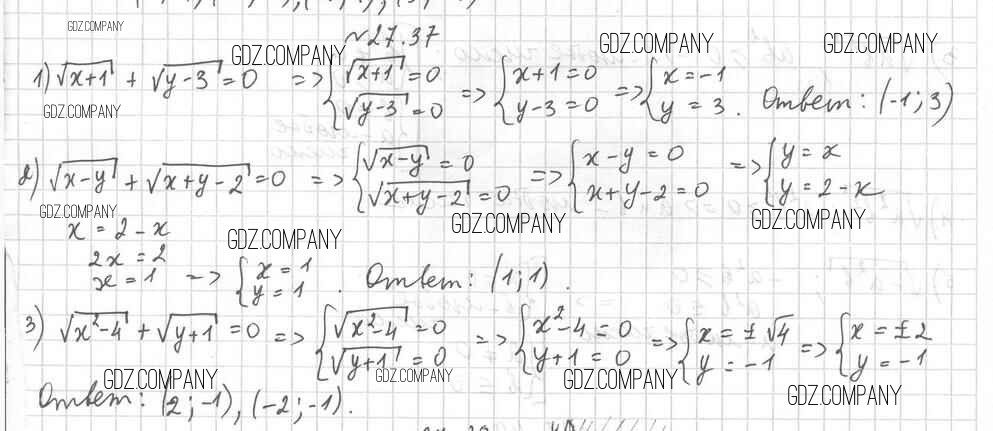 GDZ.COMPANY
№27.37
GDZ.COMPANY GDZ.COMPANY GDZ.COMPANY
1) √(x+1) + √(y-3) = 0 => { √(x+1) = 0; √(y-3) = 0 => { x+1=0; y-3=0 => { x=-1; y=3. Ответ: (-1; 3)
GDZ.COMPANY
2) √(x-y) + √(x+y-2) = 0 => { √(x-y) = 0; √(x+y-2) = 0 => { x-y=0; x+y-2=0 => { y=x; y=2-x
GDZ.COMPANY GDZ.COMPANY GDZ.COMPANY
x = 2-x
GDZ.COMPANY
2x = 2
x = 1 => { x=1; y=1. Ответ: (1; 1).
3) √(x²-4) + √(y+1) = 0 => { √(x²-4) = 0; √(y+1) = 0 => { x²-4=0; y+1=0 => { x=±√4; y=-1 => { x=±2; y=-1
GDZ.COMPANY GDZ.COMPANY GDZ.COMPANY GDZ.COMPANY
Ответ: (2; -1), (-2; -1).